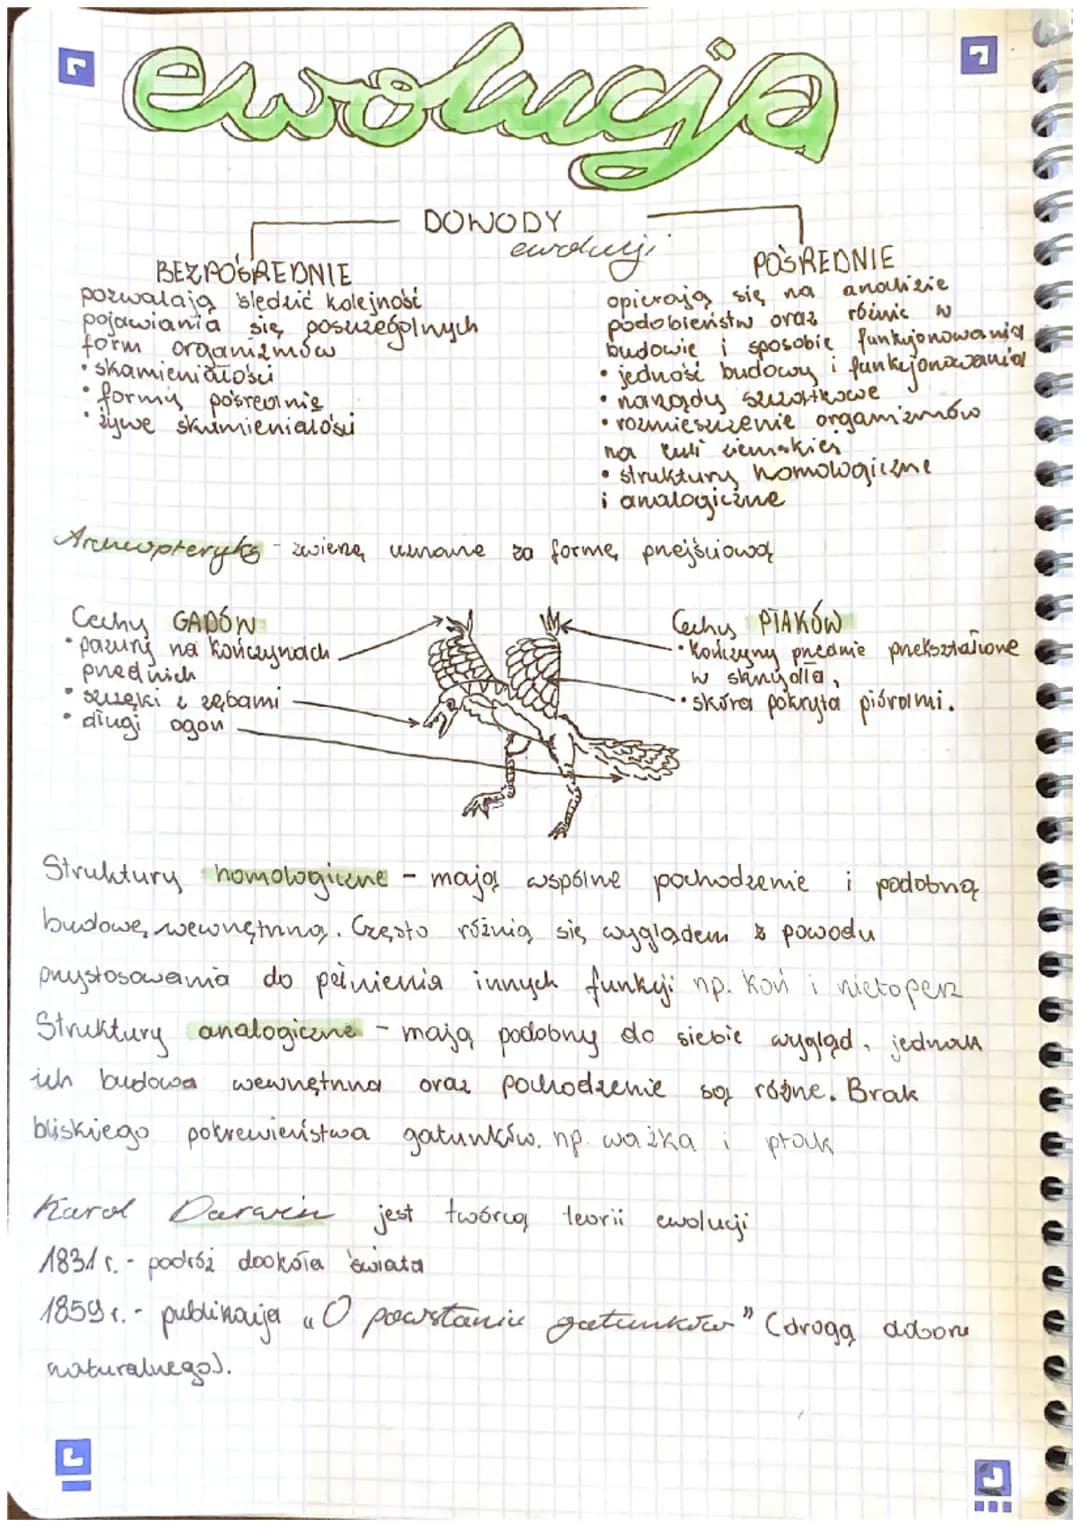 ewolucja
DOWODY
ewolucji
BEZPOŚREDNIE
pozwalają śledzić kolejność
pojawiania się poszczególnych
form organizmów
• skamieniałości
• formy pośrednie
• żywe skamieniałości
POŚREDNIE
opierają się na analizie
podobieństw oraz różnic w
budowie i sposobie funkcjonowania
• jedność budowy i funkcjonowania
• narządy szczątkowe
• rozmieszczenie organizmów
na kuli ziemskiej
• struktury homologiczne
i analogiczne
Archeopteryks - zwierzę uznane za formę przejściową
Cechy GADÓW
• pazury na kończynach
przednich
• szczęki z zębami
• długi ogon
Cechy PTAKÓW
• kończyny przednie przekształcone
w skrzydła,
• skóra pokryta piórami.
Struktury homologiczne - mają wspólne pochodzenie i podobną
budowę wewnętrzną. Często różnią się wyglądem z powodu
przystosowania do pełnienia innych funkcji np. koń i nietoperz
Struktury analogiczne - mają podobny do siebie wygląd, jednak
ich budowa wewnętrzna oraz pochodzenie są różne. Brak
bliskiego pokrewieństwa gatunków. np. ważka i ptak
Karol Darwin jest twórcą teorii ewolucji
1831 r. - podróż dookoła świata
1859 r. - publikacja „O powstaniu gatunków" (drogą doboru
naturalnego).